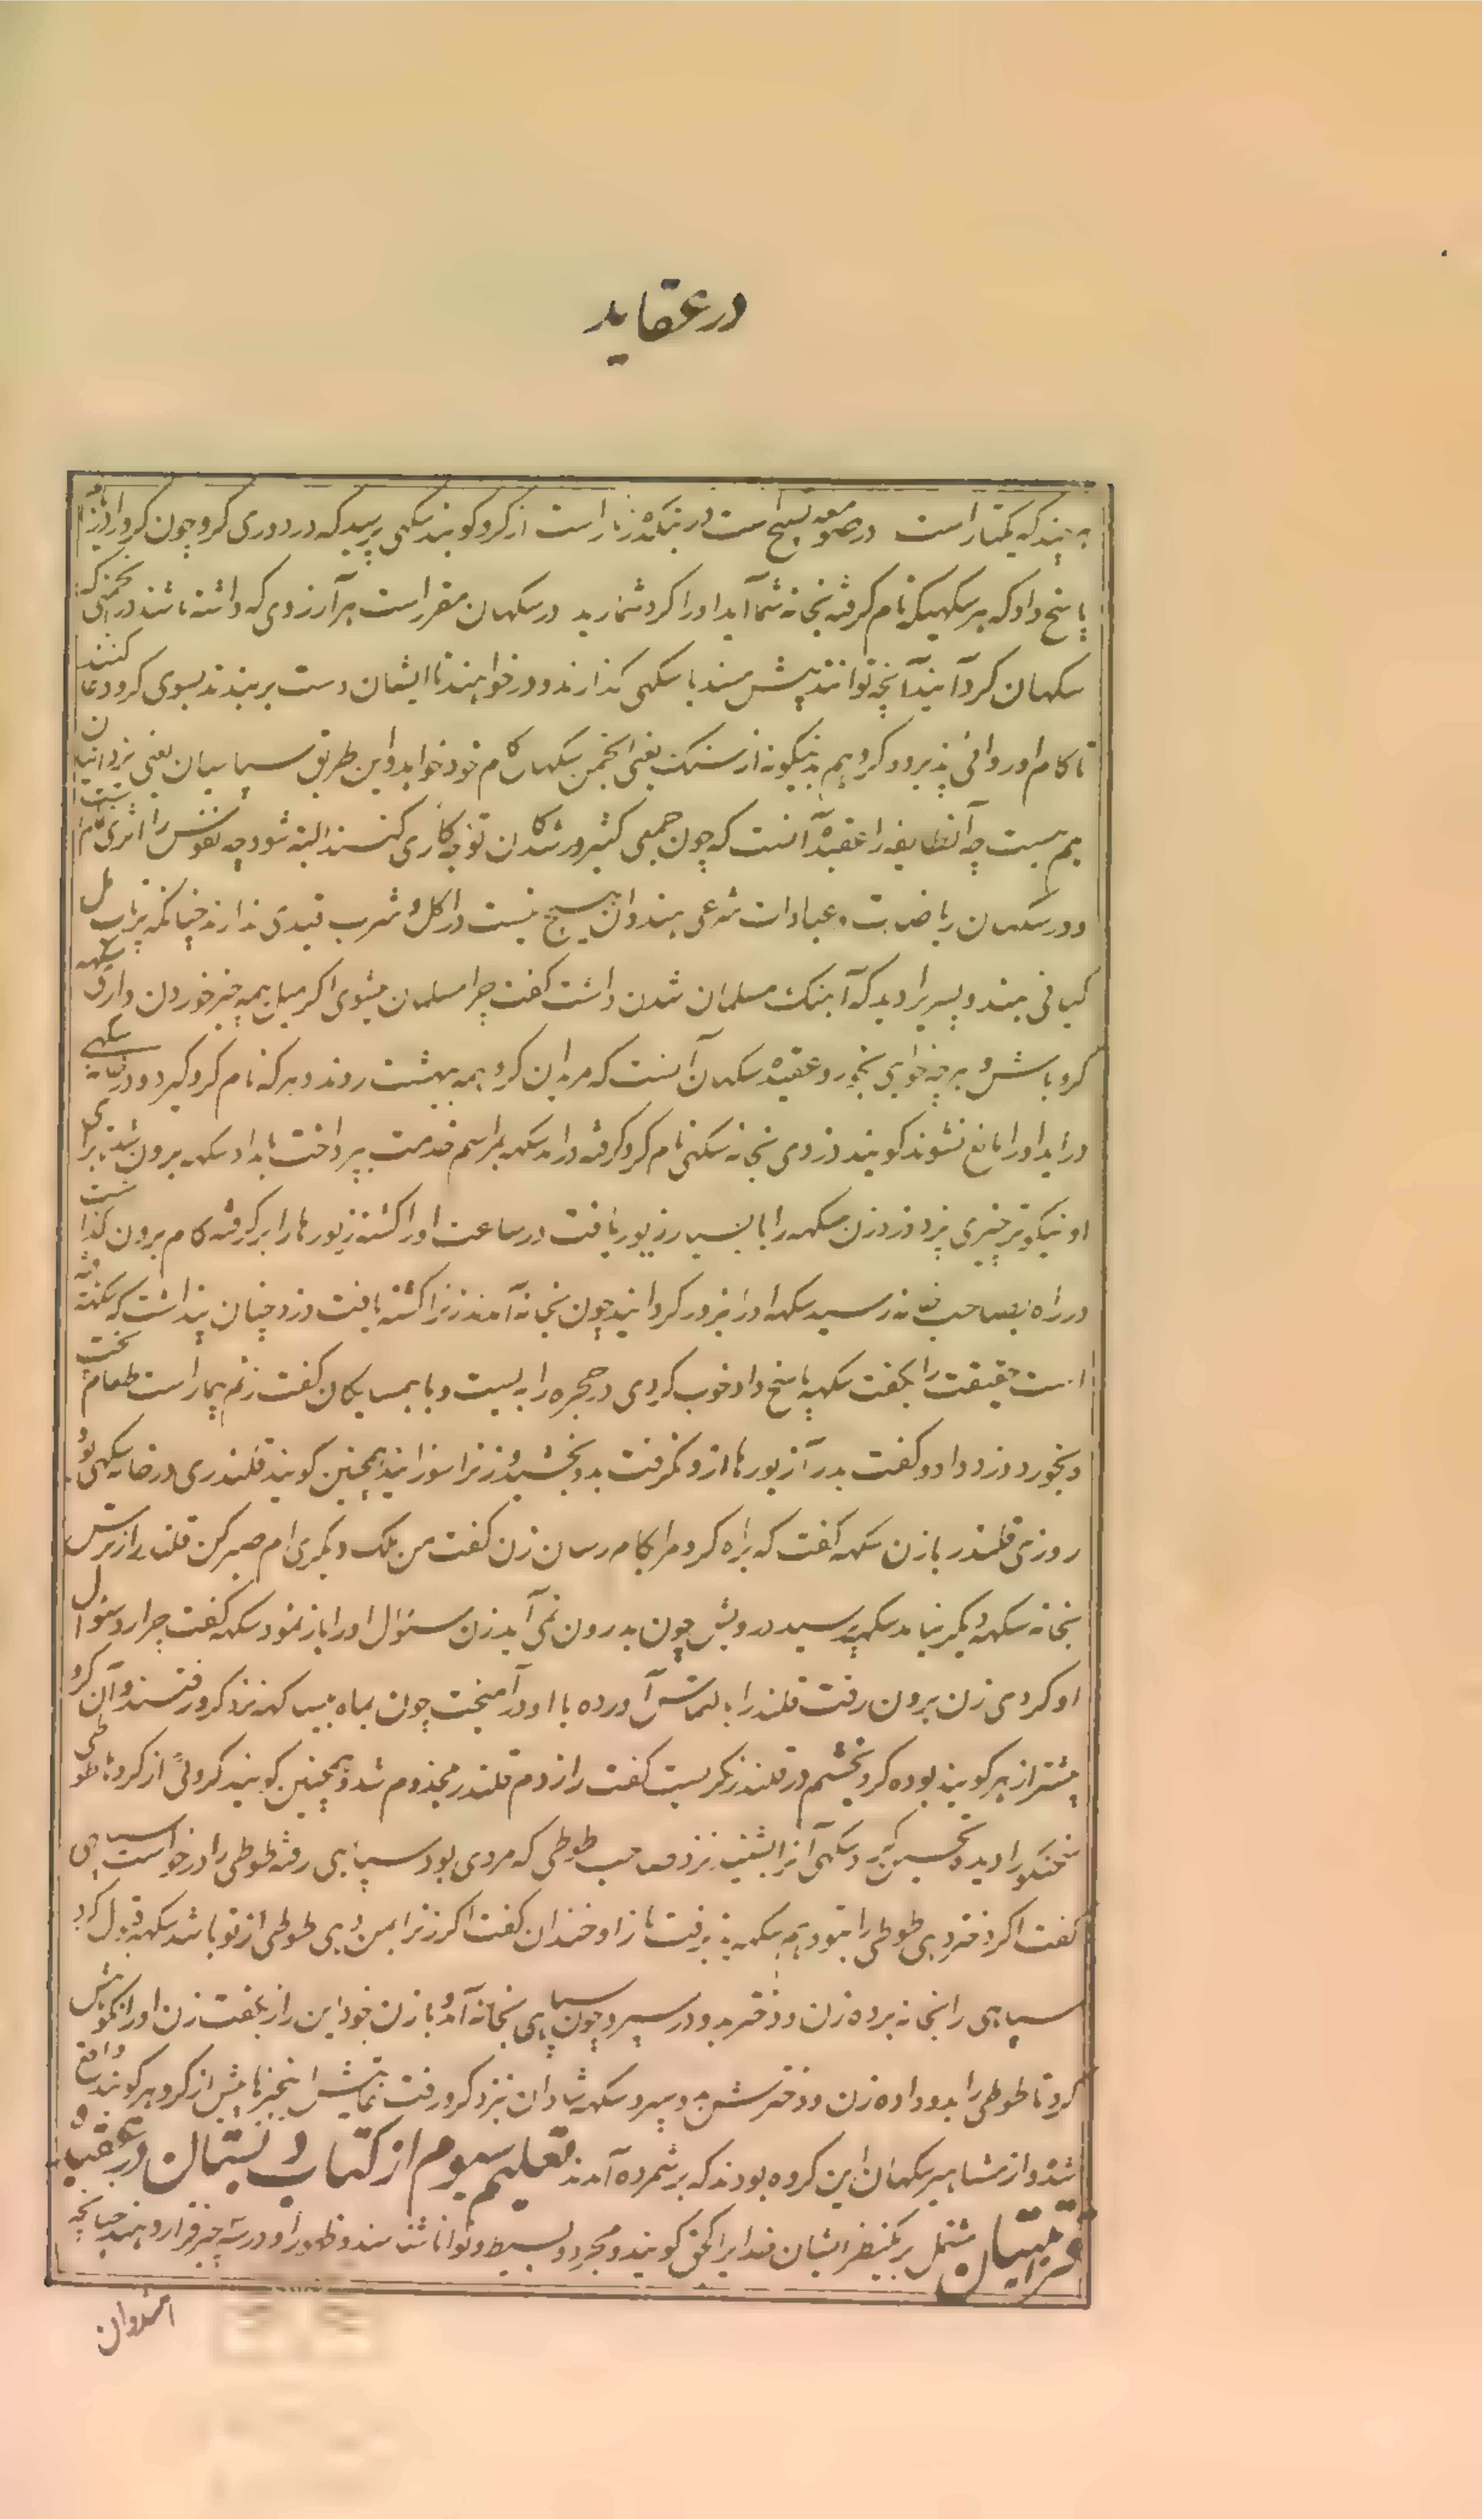 در عقاید
به بیند که یکتار است در صومعه تسبیح است در بتکده زنار است از کرو کویند سکهی پرسید که در دوری کرو چون کرو را دریابم
پاسخ داد که هر سکهیکه نام کرفته بخانه شما آید او را کرو شمارید در سکهان مقرر است هر آرزوی که داشته باشند در انجمنی که
سکهان کرد آیند آنچه توانند پیش مسند یا سکهی کذارند و درخواهند تا ایشان دست بربندند بسوی کرو و دعا کنند
تا کام او روائی پذیرد و کرو هم بدینکونه از سنکت یعنی انجمن سکهان کام خود خواهد و این طریق سپاسیان یعنی یزدانیان
هم هست چه آنطایفه را عقیده آنست که چون جمعی کثیر در شدن کاری توجه کنند البته شود چه نفوس را اثری تمام است
و در سکهان ریاضت و عبادات شرعی هندوان هیچ نیست در اکل و شرب قیدی ندارند چنانکه پرتاب مل
کیانی هندو پسریرا دید که آهنک مسلمان شدن داشت کفت چرا مسلمان میشوی اکر میل بهمه چیز خوردن داری سکهه
کرو باش و هرچه خواهی بخور و عقیده سکهان آنست که مریدان کرو همه ببهشت روند و هر که نام کرو کیرد و در خانه سکهی
در اید او را مانع نشوند کویند دزدی بخانه سکهی نام کرو کرفته در امد سکهه بمراسم خدمت پرداخت بامداد سکهه برون شد تا برای
او نیکوتر چیزی پزد دزد زن سکهه را با بسیار زیور یافت در ساعت او را کشته زیورها را بر کرفته کام برون کذاشت
در راه بصاحب خانه رسید سکهه او را بزور کردانید چون بخانه آمدند زنرا کشته یافت دزد چنان پنداشت که سکهه دانسته
است حقیقت را بکفت سکهه پاسخ داد خوب کردی در حجره را به بست و با همسایکان کفت زنم بیمار است طعام پخت
و بخورد و دزد داد و کفت بدر آ زیورها از و نکرفت بدو بخشید و زنرا سوزانید همچنین کویند قلندری در خانه سکهی بود
روزی قلندر با زن سکهه کفت که براه کرو مرا بکام رسان زن کفت من ملک دیکری ام صبر کن قلندر از ترس
بخانه سکهه دیکر نیامد سکهه پرسید درویش چون بدرون نمی آید زن سئوال او را باز نمود سکهه کفت چرا رد سئوال
او کردی زن برون رفت قلندر را به التماس آورده با او در آمیخت چون بماه بیساکهه نزد کرو رفتند و آن کرو
پیشتر از هر کوبند بوده کرو بخشم در قلندر نکریست کفت رازدم قلندر مجذوم شد و همچنین کویند کروئی از کروها طوطی
سخنکو را دیده تحسین کرد سکهی آنرا بشنید نزد صاحب طوطی که مردی بود سپاهی رفته طوطی را درخواست سپاهی
کفت اکر دختر دهی طوطی را بتو دهم سکهه پذیرفت باز او خندان کفت اکر زنرا بمن دهی طوطی از تو باشد سکهه قبول کرد
سپاهی را بخانه برده زن و دختر بدو در سپرد چون سپاهی بخانه آمد و با زن خود این راز بکفت زن او را نکوهش
کرد تا طوطی را بدو داده زن و دخترش بدو سپرد سکهه شادان بنزد کرو رفت نمایش اینچیزها پیش از کرو هر کوبند واقع
شد و از مشاهیر سکهان این کروه بودند که بر شمرده آمدند تعلیم سیوم از کتاب دبستان در عقیده
قرا تبتیان مشتمل بر یکنظر ایشان خدایرا کجق کویند و مجرد و بسیط و توانا شناسند و ظهور او در سه چیز قرار دهند چنانچه